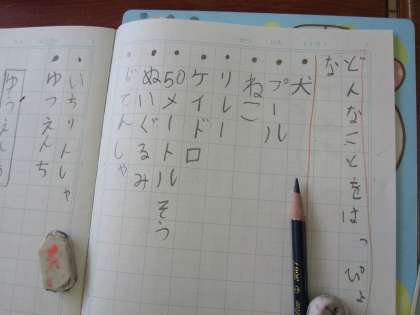 どんなことをはっぴょ
な
犬
プール
ねこ
リレー
ケイドロ
50メートルそう
ぬいぐるみ
じてんしゃ
いちりんしゃ
ゆうえんち